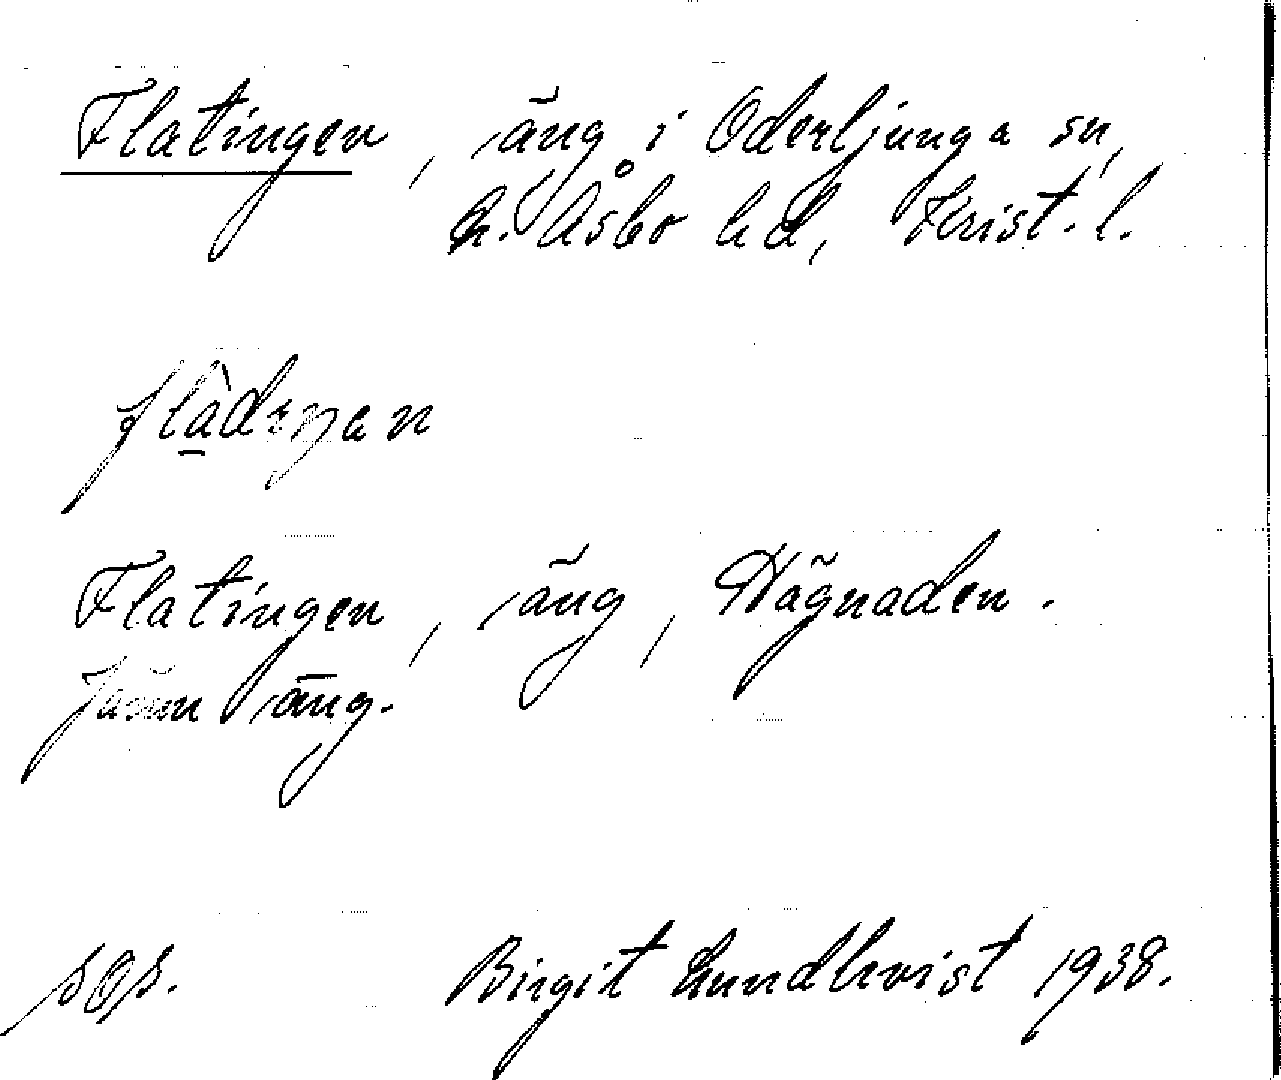 Flatingen, äng i Oderljunga sn,
N. Åsbo hd, Krist. l.
Flatingen, äng, Hägnaden.
Jämn äng.
Birgit Lundkvist 1938.